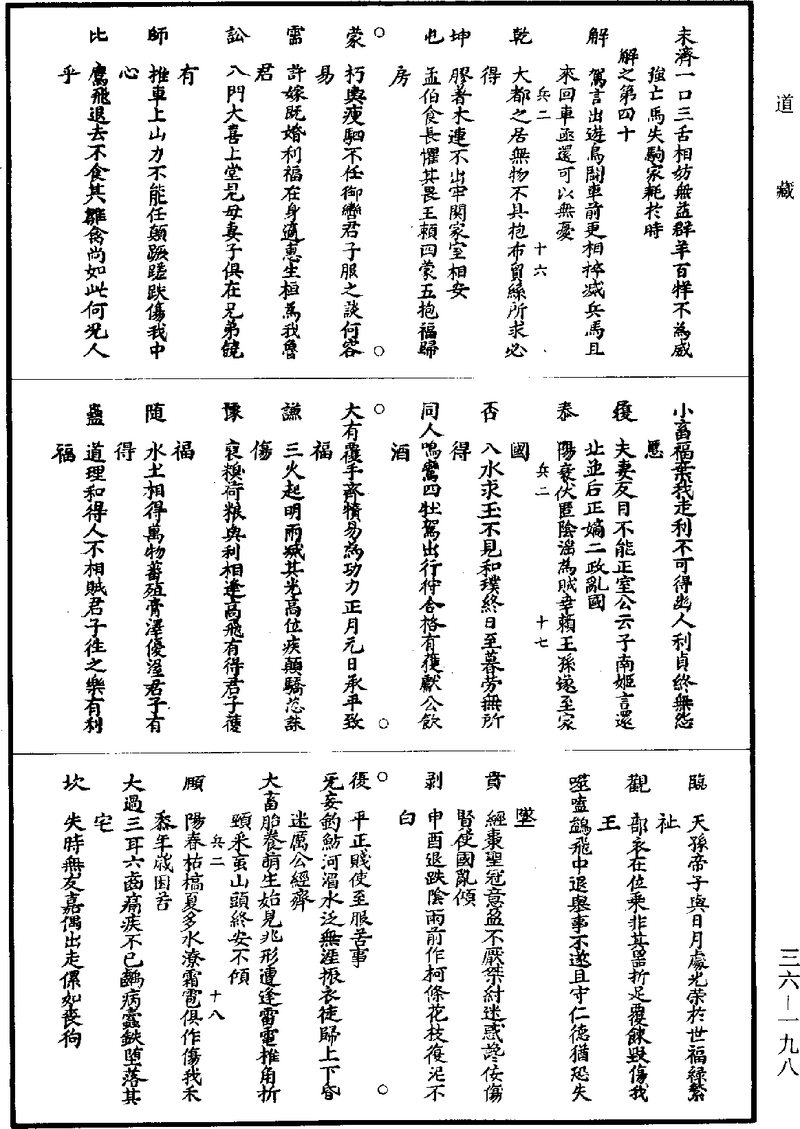 道藏
未濟一口三舌相妨無益群羊百牂不為威
強亡馬失駒家耗於時
解之第四十
解　駕言出遊鳥鬭車前更相捽滅兵馬且
來回車亟還可以無憂
兵二　十六
乾　大都之居無物不具抱布貿絲所求必
得
坤　膠著木連不出牢關家室相安
屯　孟伯食長懼其畏王賴四蒙五抱福歸
房
蒙　朽輿瘦駟不任御轡君子服之談何容
易
需　許嫁既婚利福在身適惠生桓為我魯
君
訟　入門大喜上堂見母妻子俱在兄弟饒
有
師　推車上山力不能任顛蹶蹉跌傷我中
心
比　鷹飛退去不食其雛禽尚如此何況人
乎
小畜福棄我走利不可得幽人利貞終無怨
慝
履　夫妻反目不能正室公云子南姬言還
北並后正嫡二政亂國
泰　陽衰伏匿陰淫為賊幸賴王孫遂至家
國
兵二　十七
否　入水求玉不見和璞終日至暮勞無所
得
同人鳴鸞四牡駕出行狩合格有獲獻公飲
酒
大有覆手齊犢易為功力正月元日承平致
福
謙　三火起明雨滅其光高位疾顛驕恣誅
傷
豫　裒糗荷粮與利相逢高飛有得君子獲
福
隨　水土相得萬物蕃殖膏澤優渥君子有
得
蠱　道理和得人不相賊君子往之樂有利
福
臨　天孫帝子與日月處光榮於世福祿繁
祉
觀　部衣在位乘非其器折足覆餗毀傷我
王
噬嗑鷁飛中退舉事不遂且守仁德猶恐失
墜
賁　經棗聖冠意盈不厭桀紂迷惑讒佞傷
賢使國亂傾
剥　申酉退跌陰雨前作柯條花枝復泥不
白
復　平正賤使至服苦事
无妄釣魴河湄水泛無涯振衣徒歸上下昏
迷厲公經齊
大畜胎養萌生始見兆形遭逢雷電摧角折
頸采蝱山頭終安不傾
兵二　十八
頤　陽春枯槁夏多水潦霜雹俱作傷我禾
黍年歲困苦
大過三耳六齒痛疾不已齲病蠹缺墮落其
宅
坎　失時無友嘉偶出走傫如喪狗
三六－一九八